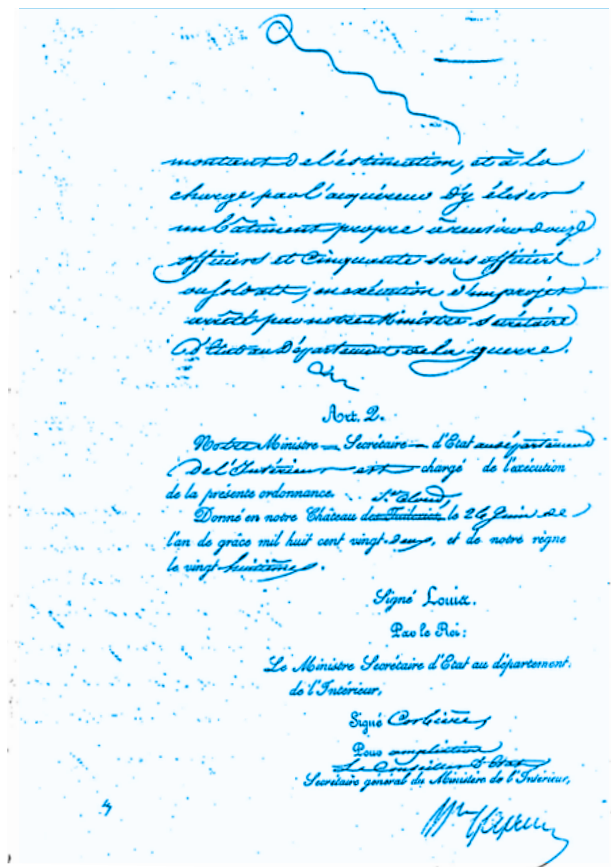 montant de l'estimation, et à la
charge par l'acquéreur d'y élever
un bâtiment propre à recevoir douze
officiers et Cinquante sous officiers
ou soldats, en exécution d'un projet
arrêté par notre Ministre Secrétaire
d'Etat au Département de la guerre.
Art. 2.
Notre Ministre Secrétaire d'Etat au département
De l'Intérieur est chargé de l'exécution
de la présente ordonnance.
St Cloud,
Donné en notre Château des Tuileries, le 26 Juin de
l'an de grâce mil huit cent vingt-deux, et de notre règne
le vingt-huitième.
Signé Louis.
Par le Roi:
Le Ministre Secrétaire d'Etat au département
de l'Intérieur,
Signé Corbière
Pour ampliation
Le Conseiller d'Etat
Secrétaire général du Ministère de l'Intérieur,
4